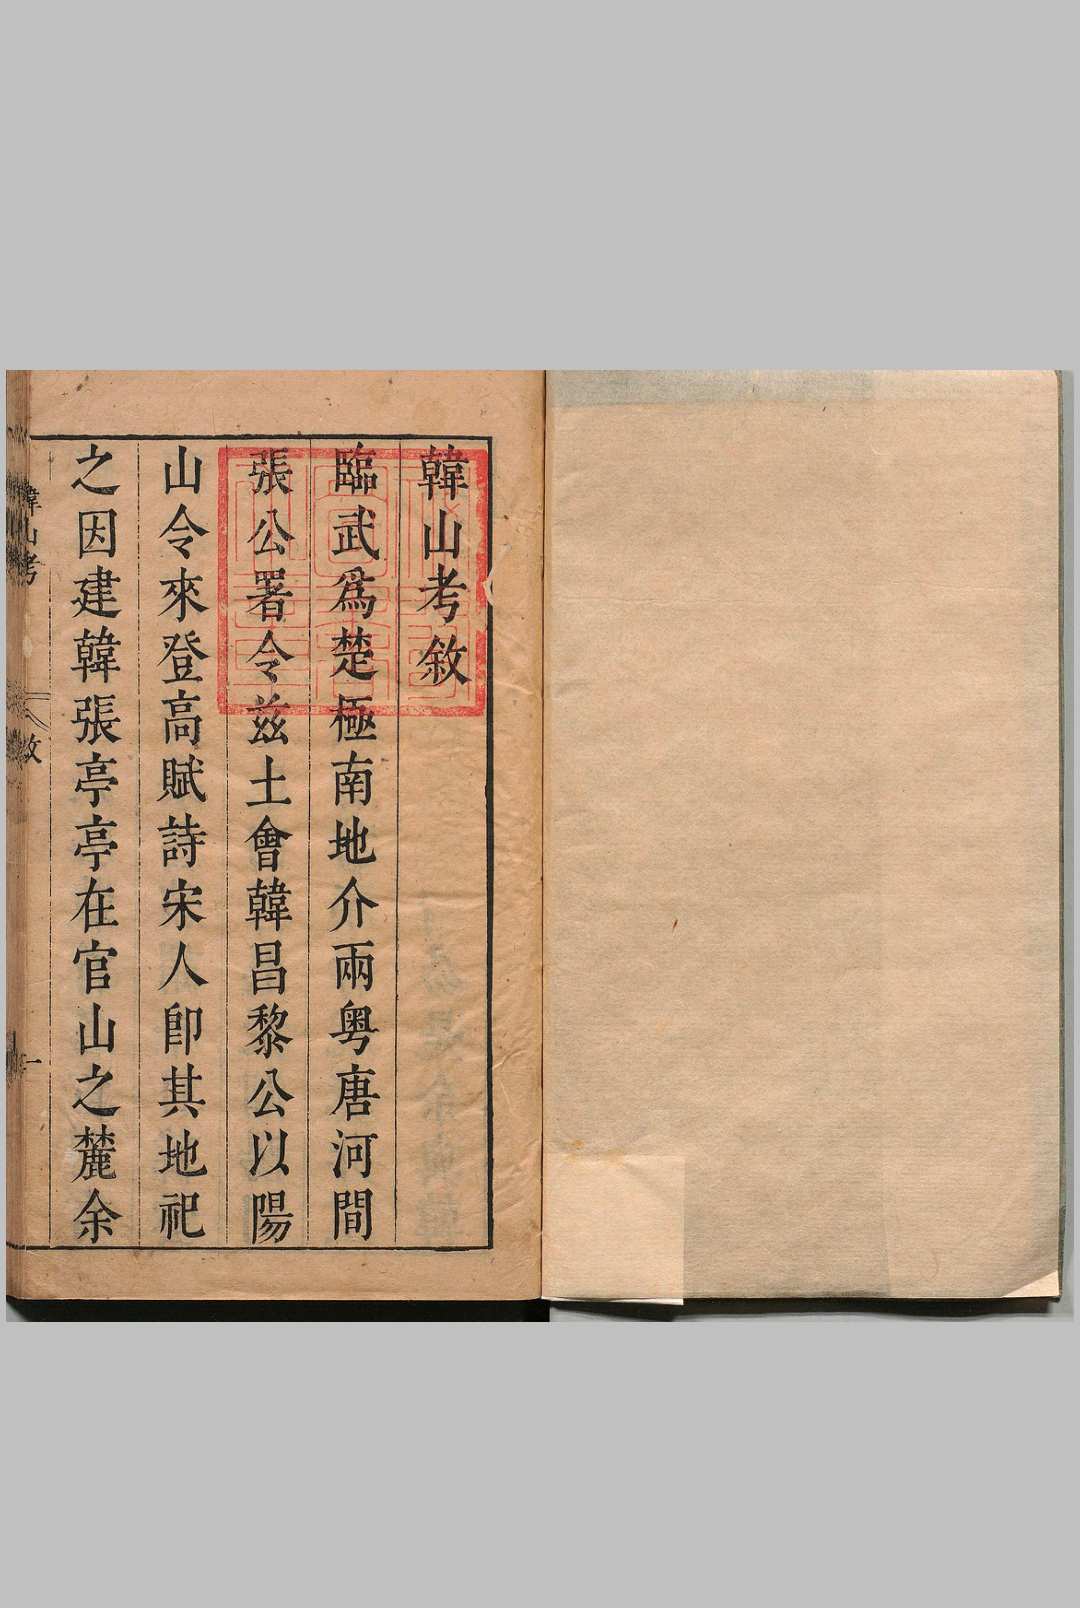 韓山考敘
臨武爲楚極南地介兩粤唐河間
張公署令兹土會韓昌黎公以陽
山令來登高賦詩宋人卽其地祀
之因建韓張亭亭在官山之麓余
韓山考
敘
一